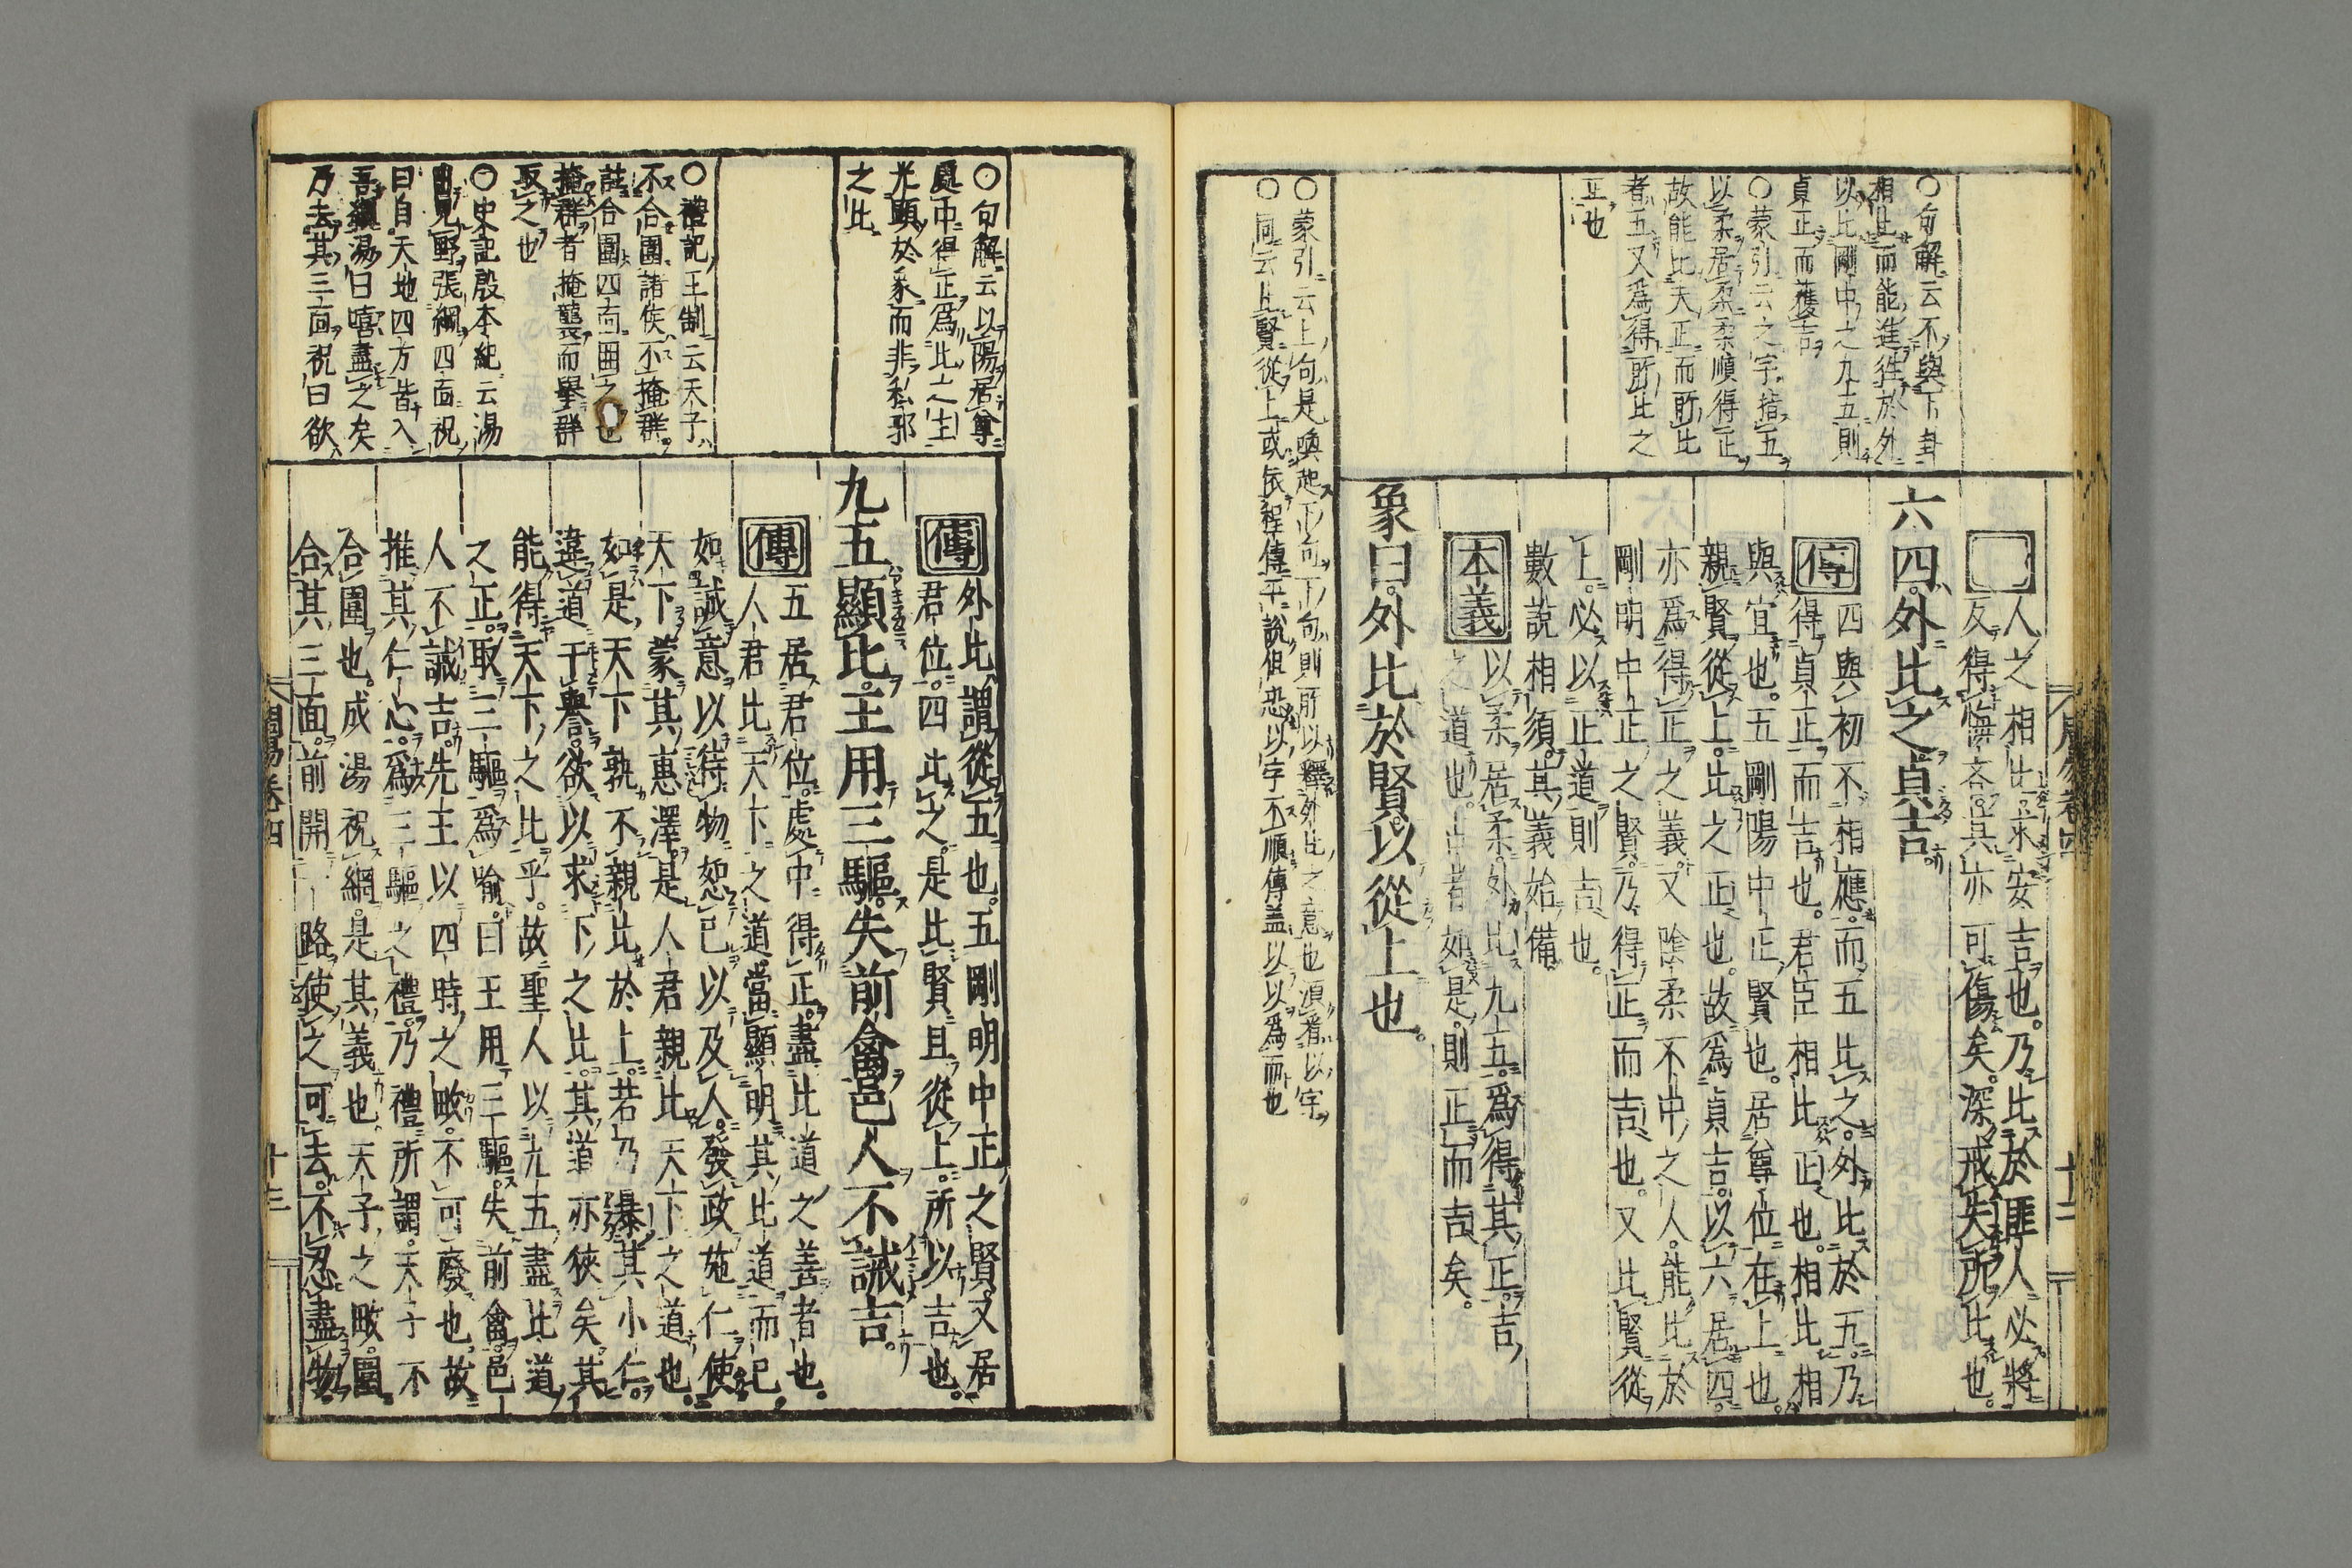 人之相比求安吉也。乃比於匪人必將
反得悔吝其亦可傷矣。深戒失所比也。
六四。外比之。貞吉。
傳
四與初不相應。而五比之。外比於五。乃
得貞正而吉也。君臣相比正也。相比相
與宜也。五剛陽中正賢也。居尊位在上也。
親賢從上。比之正也。故為貞吉。以六居四。
亦為得正之義。又陰柔不中之人。能比於
剛明中正之賢。乃得正而吉也。又比賢從
上。必以正道則吉也。
數說相須。其義始備。
本義
以柔居柔。外比九五。為得其正。吉
之道也。占者如是。則正而吉矣。
象曰。外比於賢。以從上也。
○句解云不與下卦
相比而能進往於外
以比剛中之九五則
貞正而獲吉
○蒙引云之字指五
以柔居柔柔順得正
故能比天正而所比
者五又為得所比之
正也
○蒙引云上句是喚起下句下句則所以釋外比之意也須看以字
○同云上賢從上或依程傳平說但恐以字不順傳盖以以為而也
周易卷四
十二
傳
外比謂從五也。五剛明中正之賢。又居
君位。四比之。是比賢且從上。所以吉也。
九五顯比。王用三驅。失前禽。邑人不誡吉。
傳
五居君位。處中得正。盡比道之善者也。
人君比天下之道。當顯明其比道而已。
如誠意以待物恕己以及人。發政施仁使
天下蒙其惠澤。是人君親比天下之道也。
如是天下孰不親比於上。若乃暴其小仁。
違道干譽。欲以求下之比。其道亦狹矣。其
能得天下之比乎。故聖人以九五盡比道
之正。取三驅為喻。曰王用三驅。失前禽。邑
人不誡吉。先王以四時之畋。不可廢也。故
推其仁心。為三驅之禮。乃禮所謂。天子不
合圍也。成湯祝網。是其義也。天子之畋。圍
合其三面。前開一路。使之可去。不忍盡物。
○句解云以陽居尊
處中得正為比之主
光顯於彖而非私邪
之比
○禮記王制云天子
不合圍諸侯不掩群
註合圍四面田之也
掩群者掩襲而舉群
取之也
○史記殷本紀云湯
出見野張網四面祝
曰自天地四方皆入
吾網湯曰嘻盡之矣
乃去其三面祝曰欲
周易卷四
十三